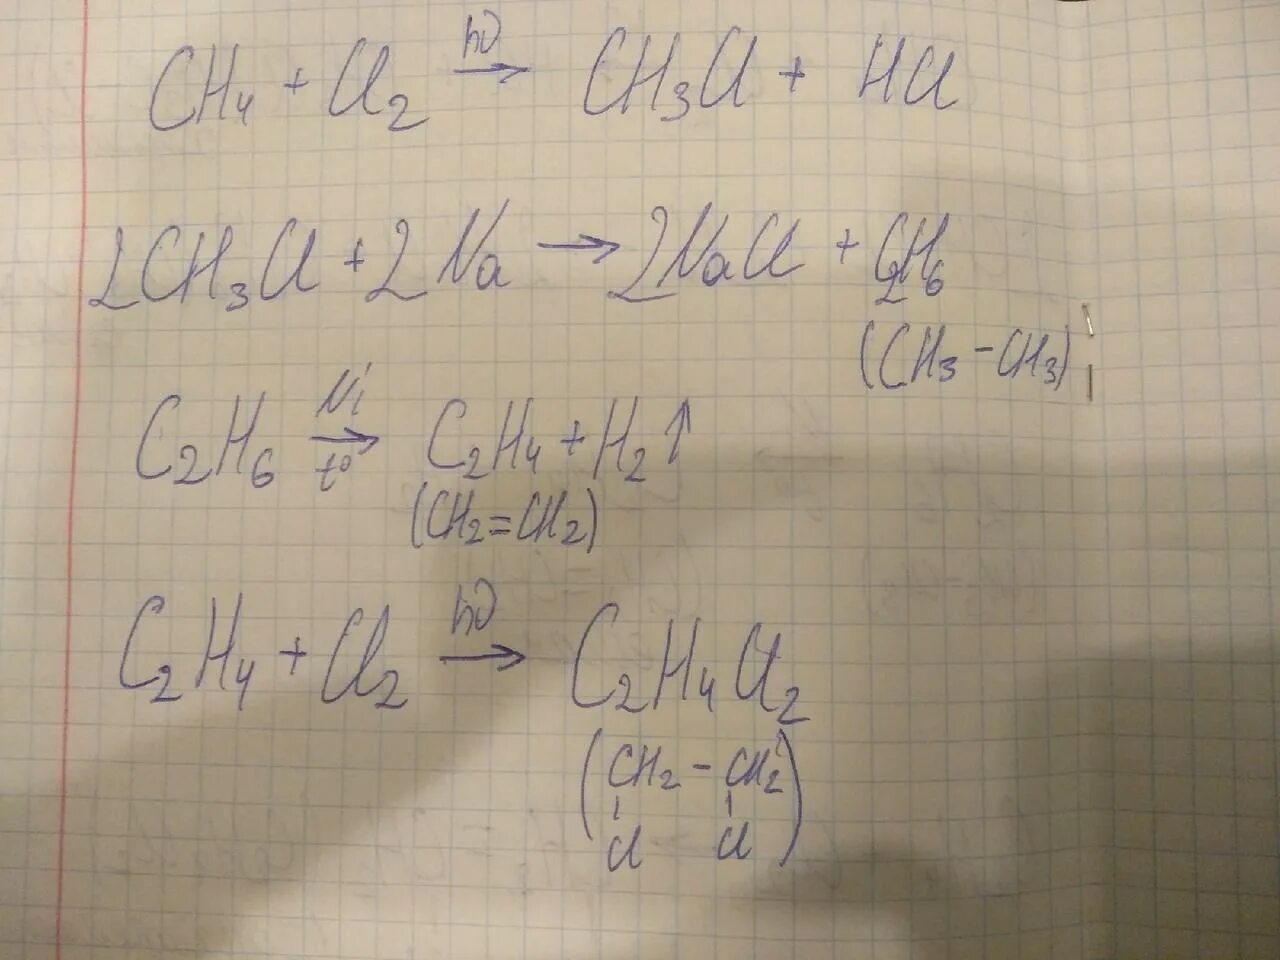 CH₄ + Cl₂ →(hν) CH₃Cl + HCl
2CH₃Cl + 2Na → 2NaCl + C₂H₆
(CH₃ – CH₃)
C₂H₆ →(Ni, t°) C₂H₄ + H₂↑
(CH₂ = CH₂)
C₂H₄ + Cl₂ →(hν) C₂H₄Cl₂
(CH₂ – CH₂)
Cl Cl